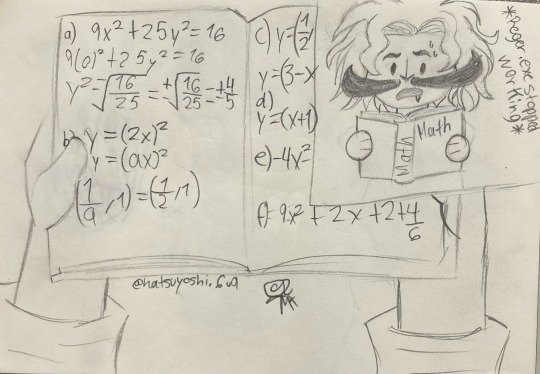 a) 9x²+25y²=16
9(0)²+25y²=16
y²=√16/25=±√16/25=±4/5
b) y=(2x)²
y=(ax)²
(1/a,1)=(1/2,1)
c) y=(1/2
y=(3-x
d)
y=(x+1)
e)-4x²
f) 9x²+2x+2+4/6
Math
MATH
*Roger.exe stopped
working*